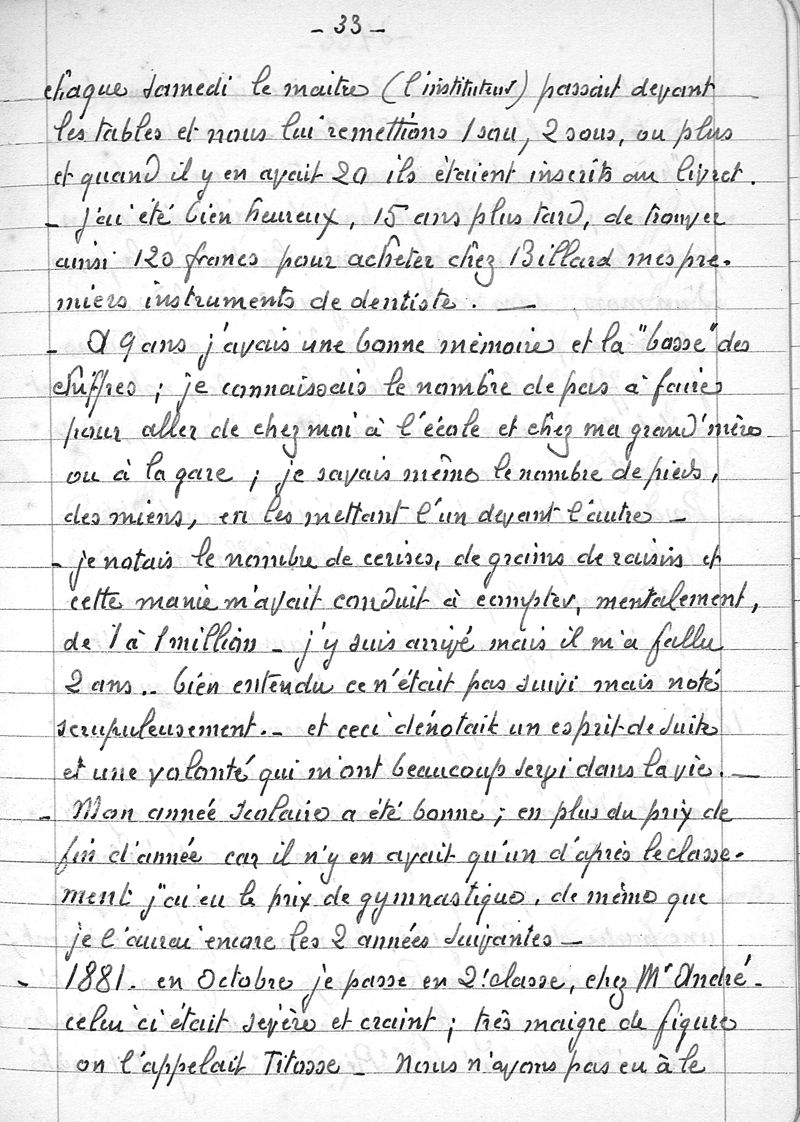 - 33 -
chaque samedi le maitre (l'instituteur) passait devant
les tables et nous lui remettions 1 sou, 2 sous, ou plus
et quand il y en avait 20 ils étaient inscrits au livret.
- j'ai été bien heureux, 15 ans plus tard, de trouver
ainsi 120 francs pour acheter chez Billard mes pre-
miers instruments de dentiste. —
- A 9 ans j'avais une bonne mémoire et la "bosse" des
chiffres ; je connaissais le nombre de pas à faire
pour aller de chez moi à l'école et chez ma grand'mère
ou à la gare ; je savais même le nombre de pieds,
des miens, en les mettant l'un devant l'autre -
- je notais le nombre de cerises, de grains de raisins et
cette manie m'avait conduit à compter, mentalement,
de 1 à 1 million - j'y suis arrivé mais il m'a fallu
2 ans.. bien entendu ce n'était pas suivi mais noté
scrupuleusement.- et ceci dénotait un esprit de suite
et une volonté qui m'ont beaucoup servi dans la vie. —
- Mon année scolaire a été bonne ; en plus du prix de
fin d'année car il n'y en avait qu'un d'après le classe-
ment j'ai eu le prix de gymnastique, de même que
je l'aurai encore les 2 années suivantes -
- 1881. en Octobre je passe en 2e classe, chez Mr André -
celui ci était sévère et craint ; très maigre de figure
on l'appelait Titosse - Nous n'avons pas eu à le